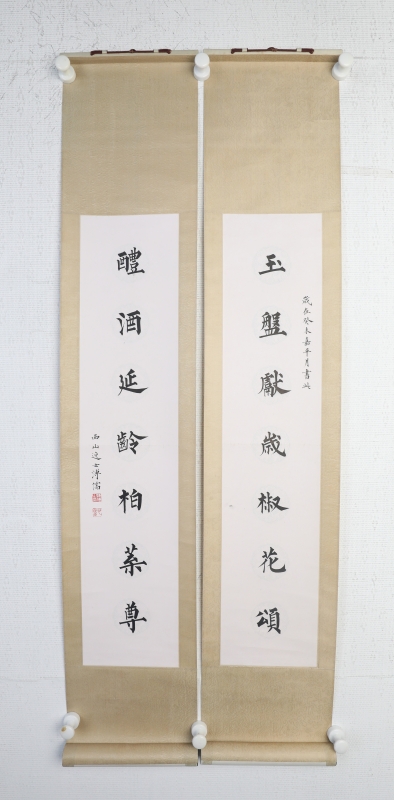 玉盤獻歲椒花頌
歲在癸未嘉平月書此
醴酒延齡柏葉尊
西山逸士溥儒